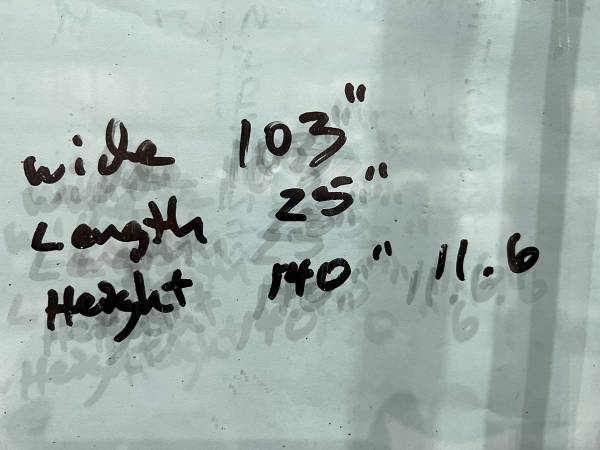 wide 103"
Length 25"
Height 140" 11.6